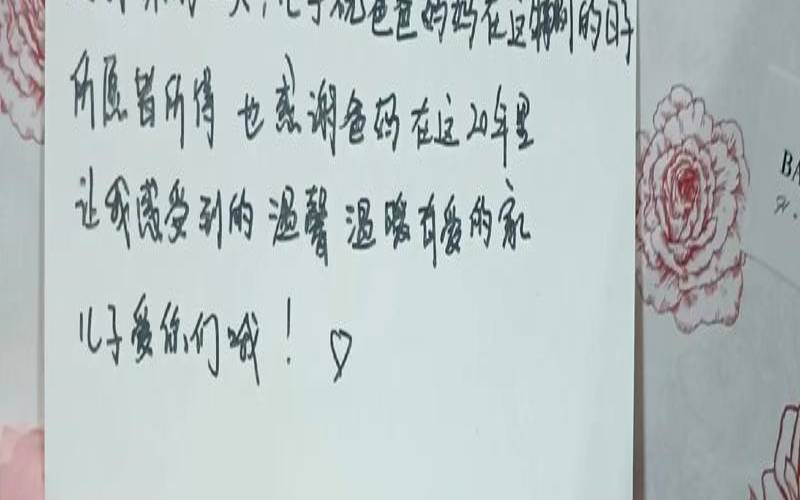 儿子祝爸爸妈妈在这特别的日子
所愿皆所得 也感谢爸妈在这20年里
让我感受到的温馨温暖有爱的家
儿子爱你们哦！♡
BA